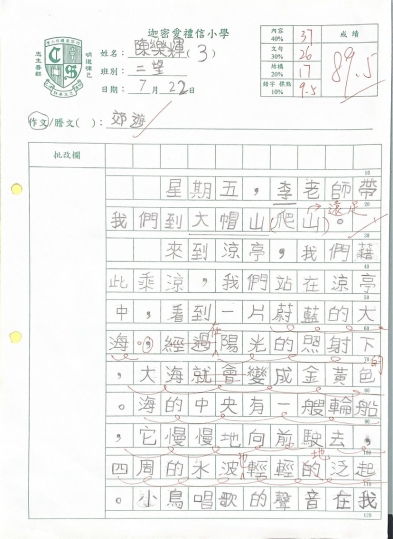 迦密愛禮信小學
姓名：陳樂輝(3)
班別：二望
日期：7月22日
內容 40% 37
文句 30% 26
結構 20% 17
錯字 標點 10% 9.5
成績
89.5
作文/謄文( )：郊遊
批改欄
星期五，李老師帶
我們到大帽山(爬山)。遠足
來到涼亭，我們藉
此乘涼，我們站在涼亭
中，看到一片蔚藍的大
海，經過在陽光的照射下
，大海就會變成金黃色的
。海的中央有一艘輪船
，它慢慢地向前駛去，
四周的水波地輕輕的地泛起
。小鳥唱歌的聲音在我